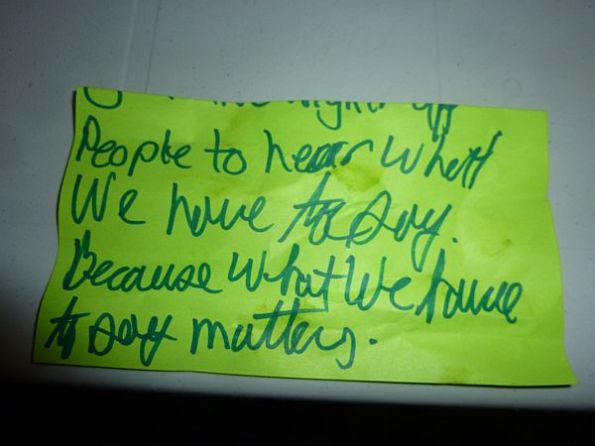 People to hear what
We have to say.
Because what We have
to say matters.